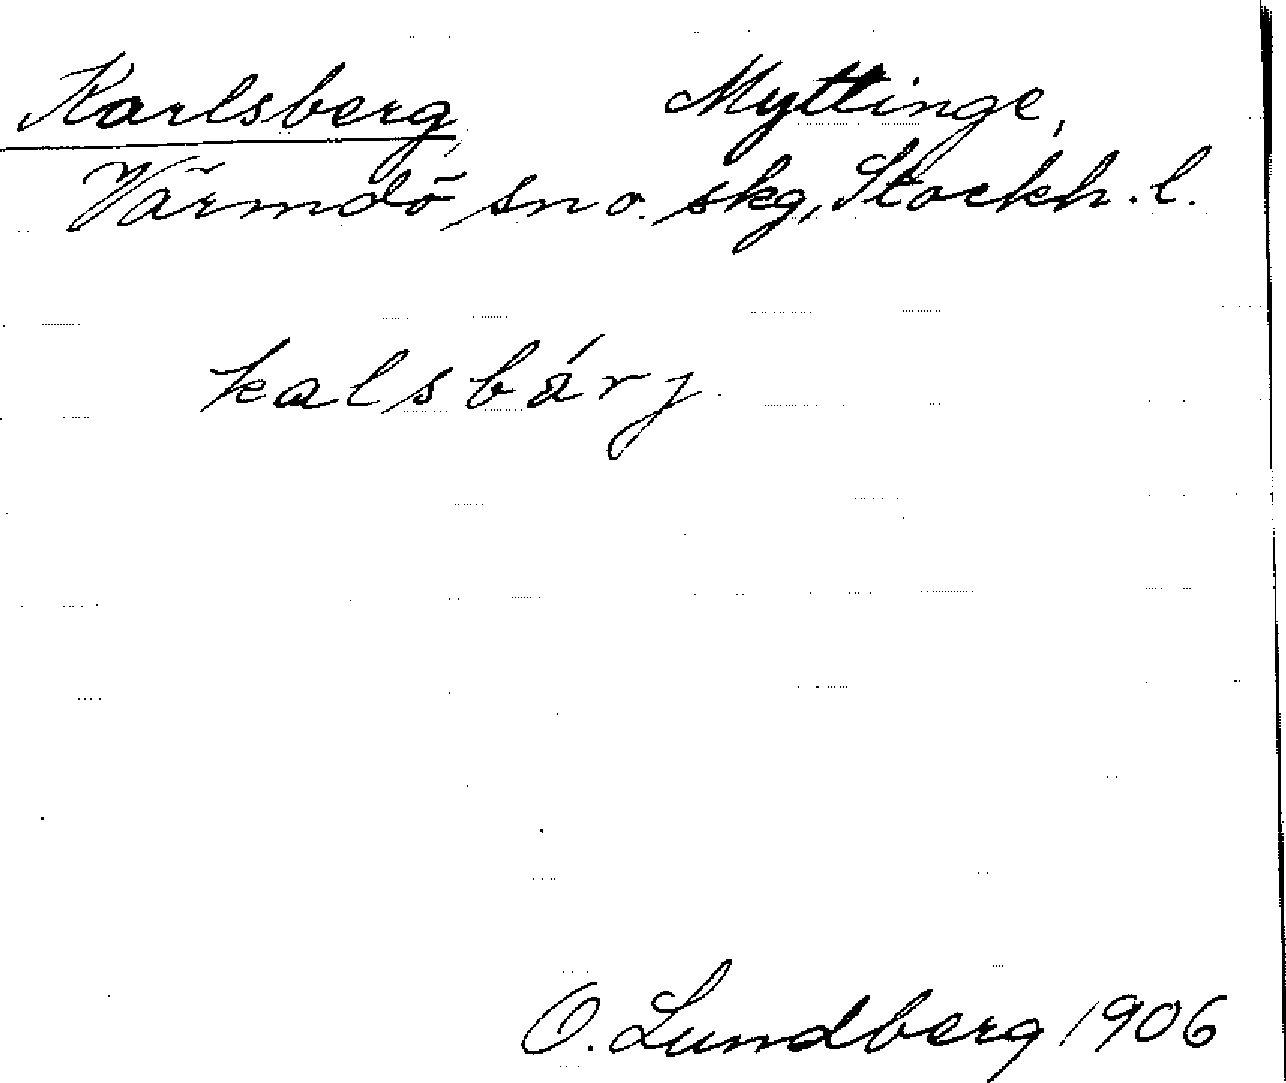 Karlsberg Myttinge,
Värmdö sn o. skg, Stockh. l.
kalsbárj
O. Lundberg 1906